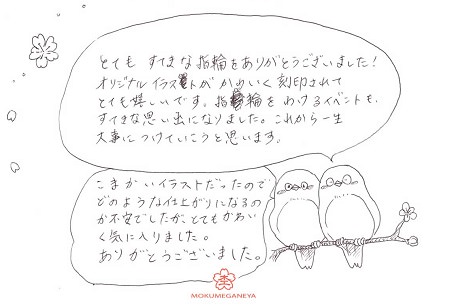 とても すてきな指輪をありがとうございました!
オリジナルイラストが かわいく刻印されて
とても嬉しいです。指輪を わけるイベントも、
すてきな思い出になりました。これから一生
大事につけていこうと思います。
こまかいイラストだったので
どのような仕上がりになるの
か不安でしたが、とてもかわい
く気に入りました。
ありがとうございました。
MOKUMEGANEYA